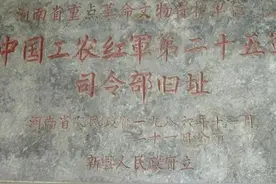 河南省重点革命文物保护单位
中国工农红軍第二十五軍
司令部旧址
河南省人民政府一九八六年十一月
二十一日公布
新县人民政府立